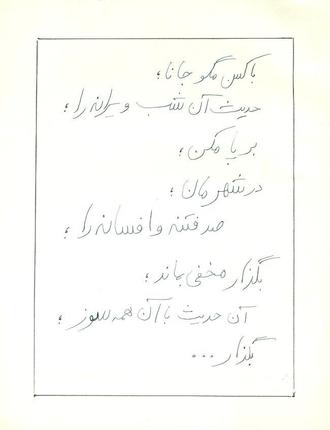 با کس مگو جانا؛
حدیث آن شب ویرانه را؛
بر پا مکن؛
در شهرمان؛
صد فتنه و افسانه را؛
بگذار مخفی بماند؛
آن حدیث با آن همه سوز؛
بگذار ...